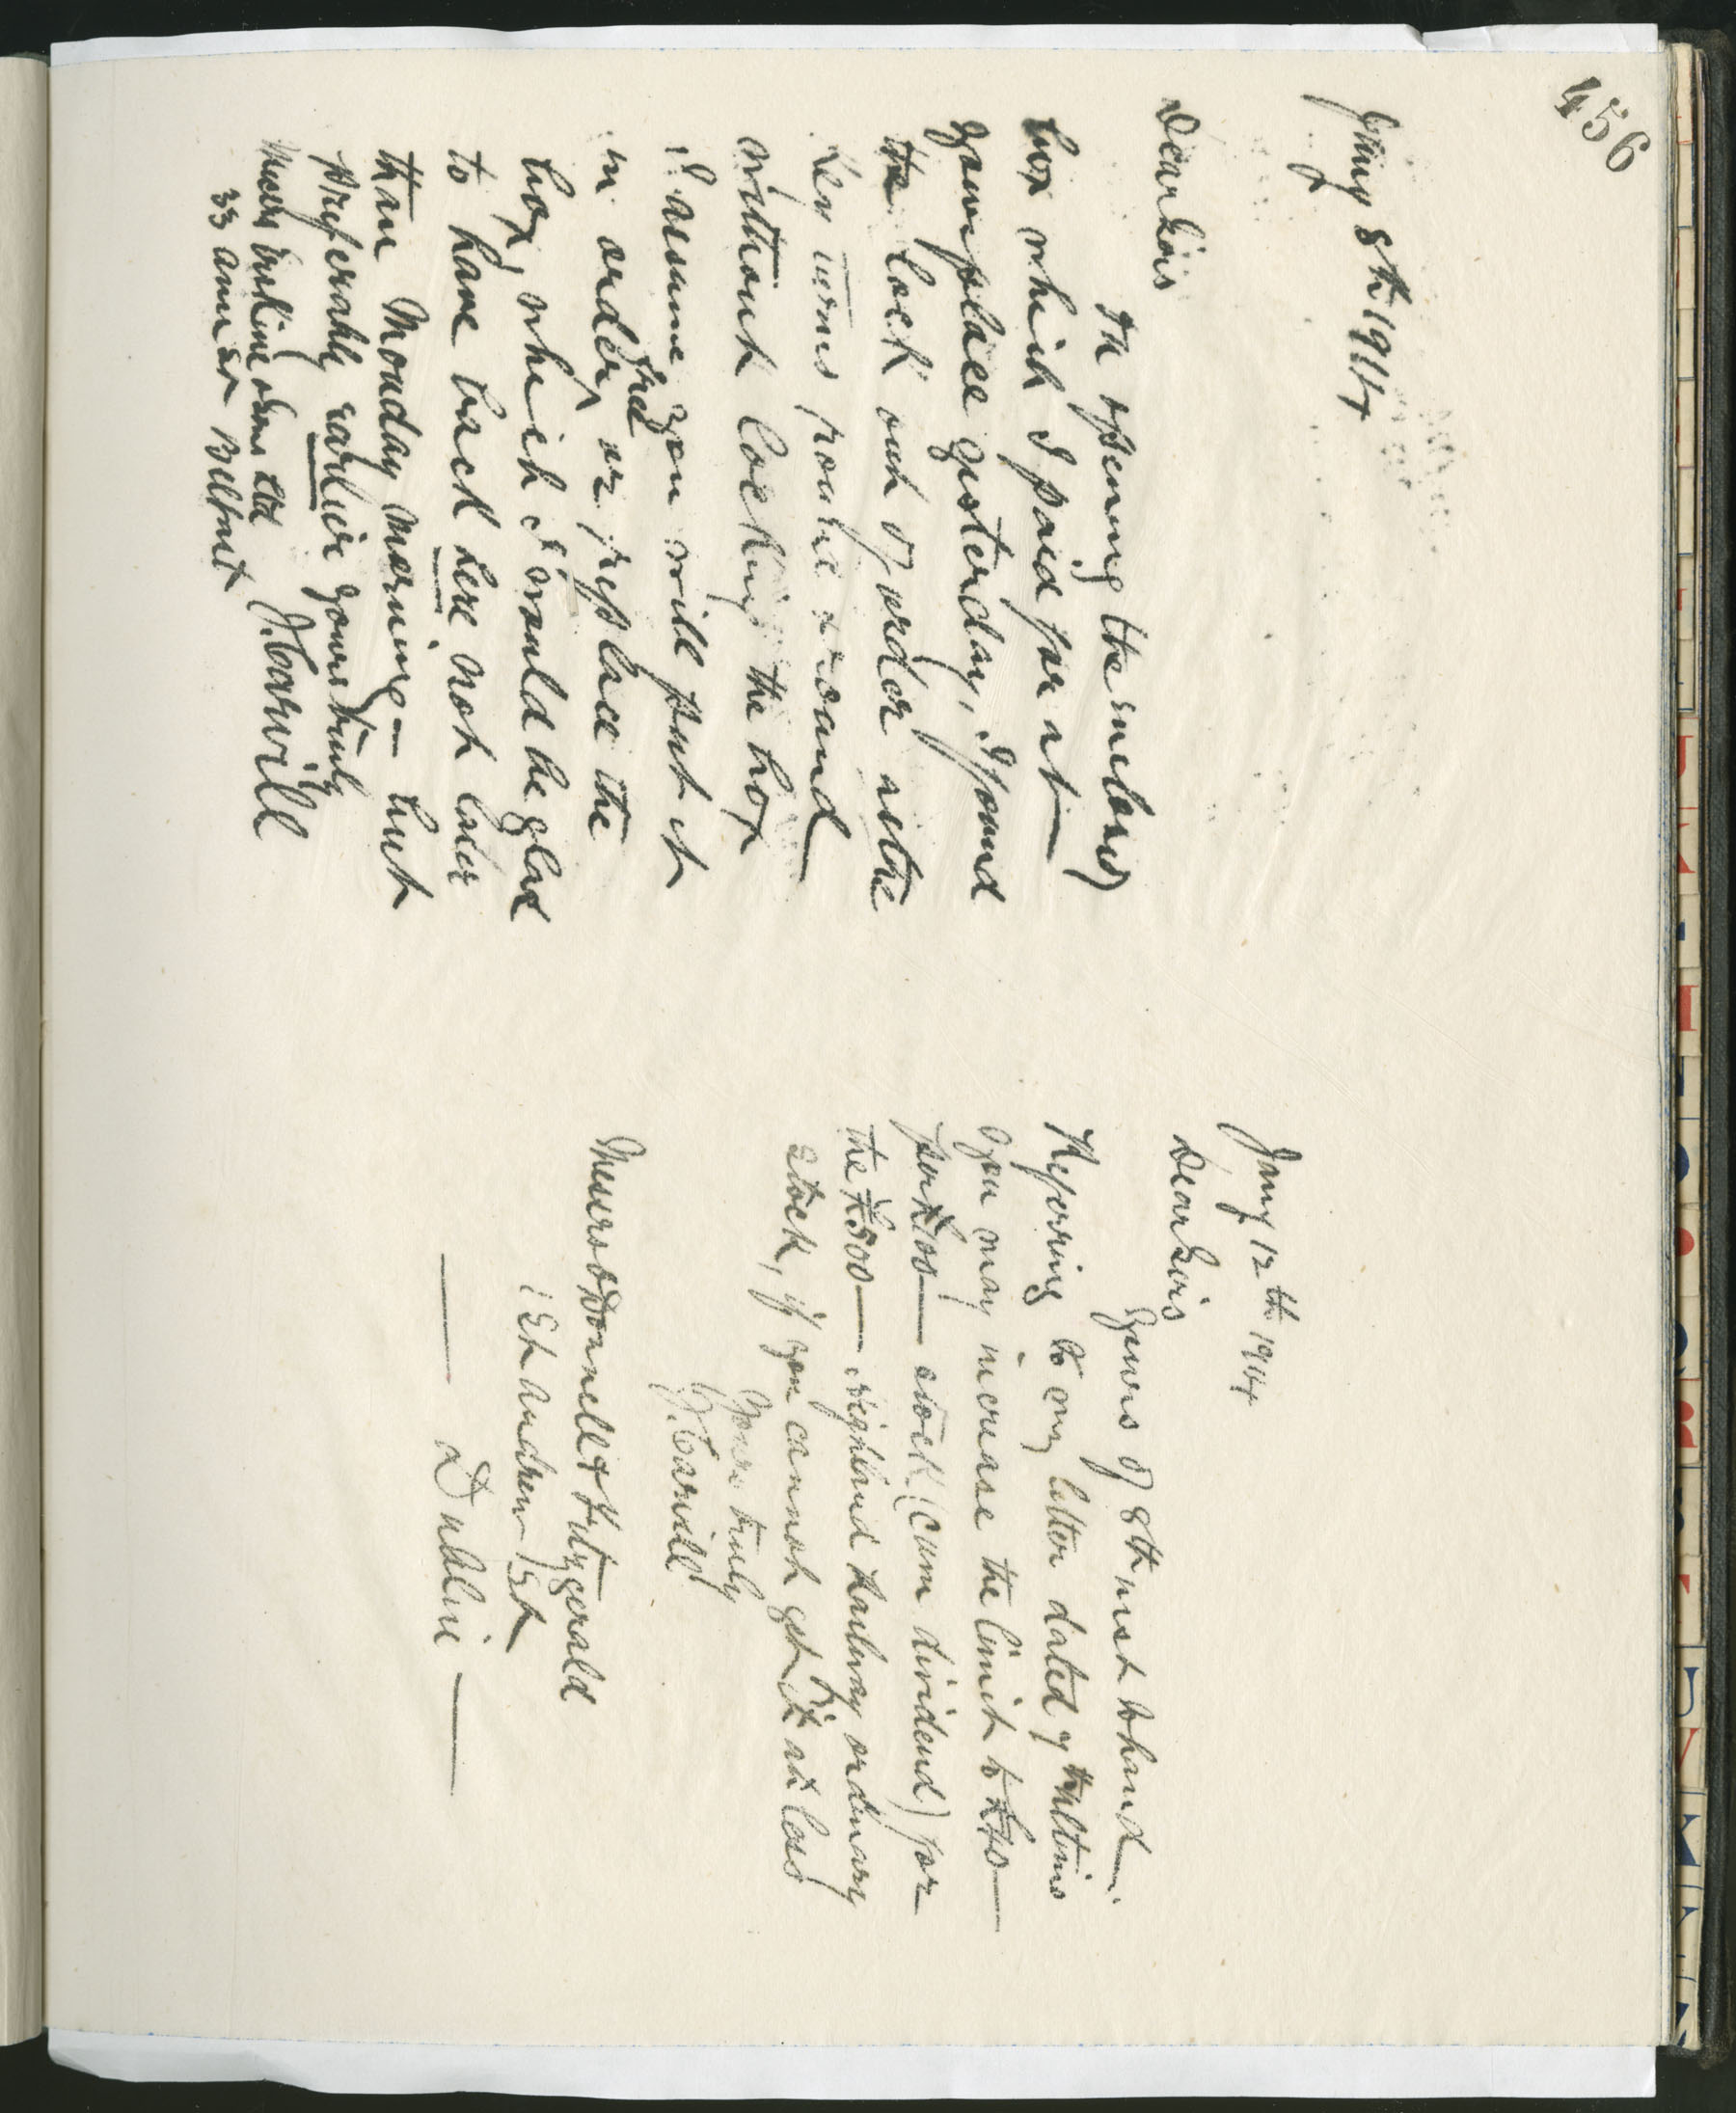 456
Jany 8th 1914
Dear Sirs
On opening the enclosed
box which I paid for at
your place yesterday, I found
the lock out of order as the
key turns round & round
without locking the box
I assume you will put it
in order free or replace the
box, which I would be glad
to have back here not later
than Monday morning — but
preferably earlier yours truly
J. Carvill
Messrs Ltd
33 Ann St Belfast
Jany 12th 1914
Dear Sirs
Yours of 8th inst to hand
Referring to my letter dated 7th ultimo
you may increase the limit to
per £100 — stock (cum dividend) for
the £500 — Highland Railway ordinary
stock, if you cannot get it at less
Yours truly
J. Carvill
Messrs O'Donnell & Fitzgerald
1 St Andrew St
— Dublin —